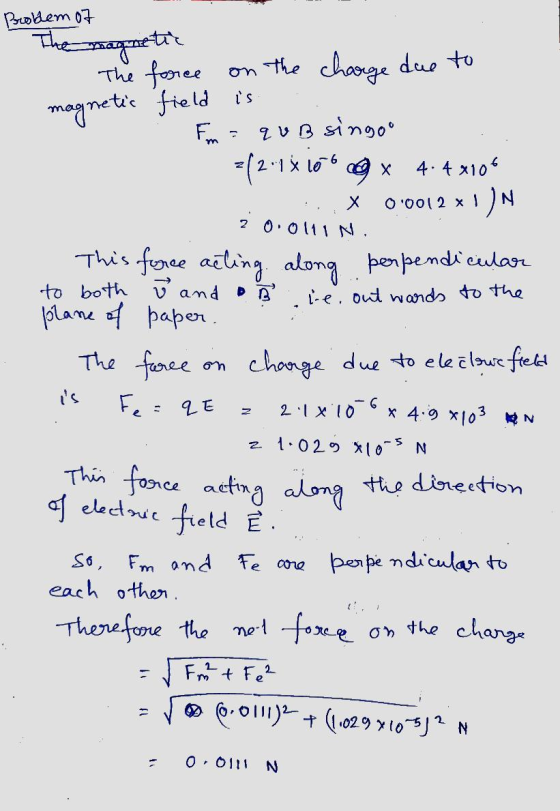 Problem 07
The magnetic
The force on the charge due to
magnetic field is
Fm = q v B sin90°
= (2.1 × 10^-6 × 4.4 × 10^6
× 0.0012 × 1) N
= 0.0111 N.
This force acting along perpendicular
to both v⃗ and B⃗ i.e. outwards to the
plane of paper.
The force on charge due to electric field
is Fe = qE = 2.1 × 10^-6 × 4.9 × 10^3 N
= 1.029 × 10^-5 N
This force acting along the direction
of electric field E⃗.
So, Fm and Fe are perpendicular to
each other.
Therefore the net force on the charge
= √(Fm² + Fe²)
= √((0.0111)² + (1.029 × 10^-5)²) N
= 0.0111 N